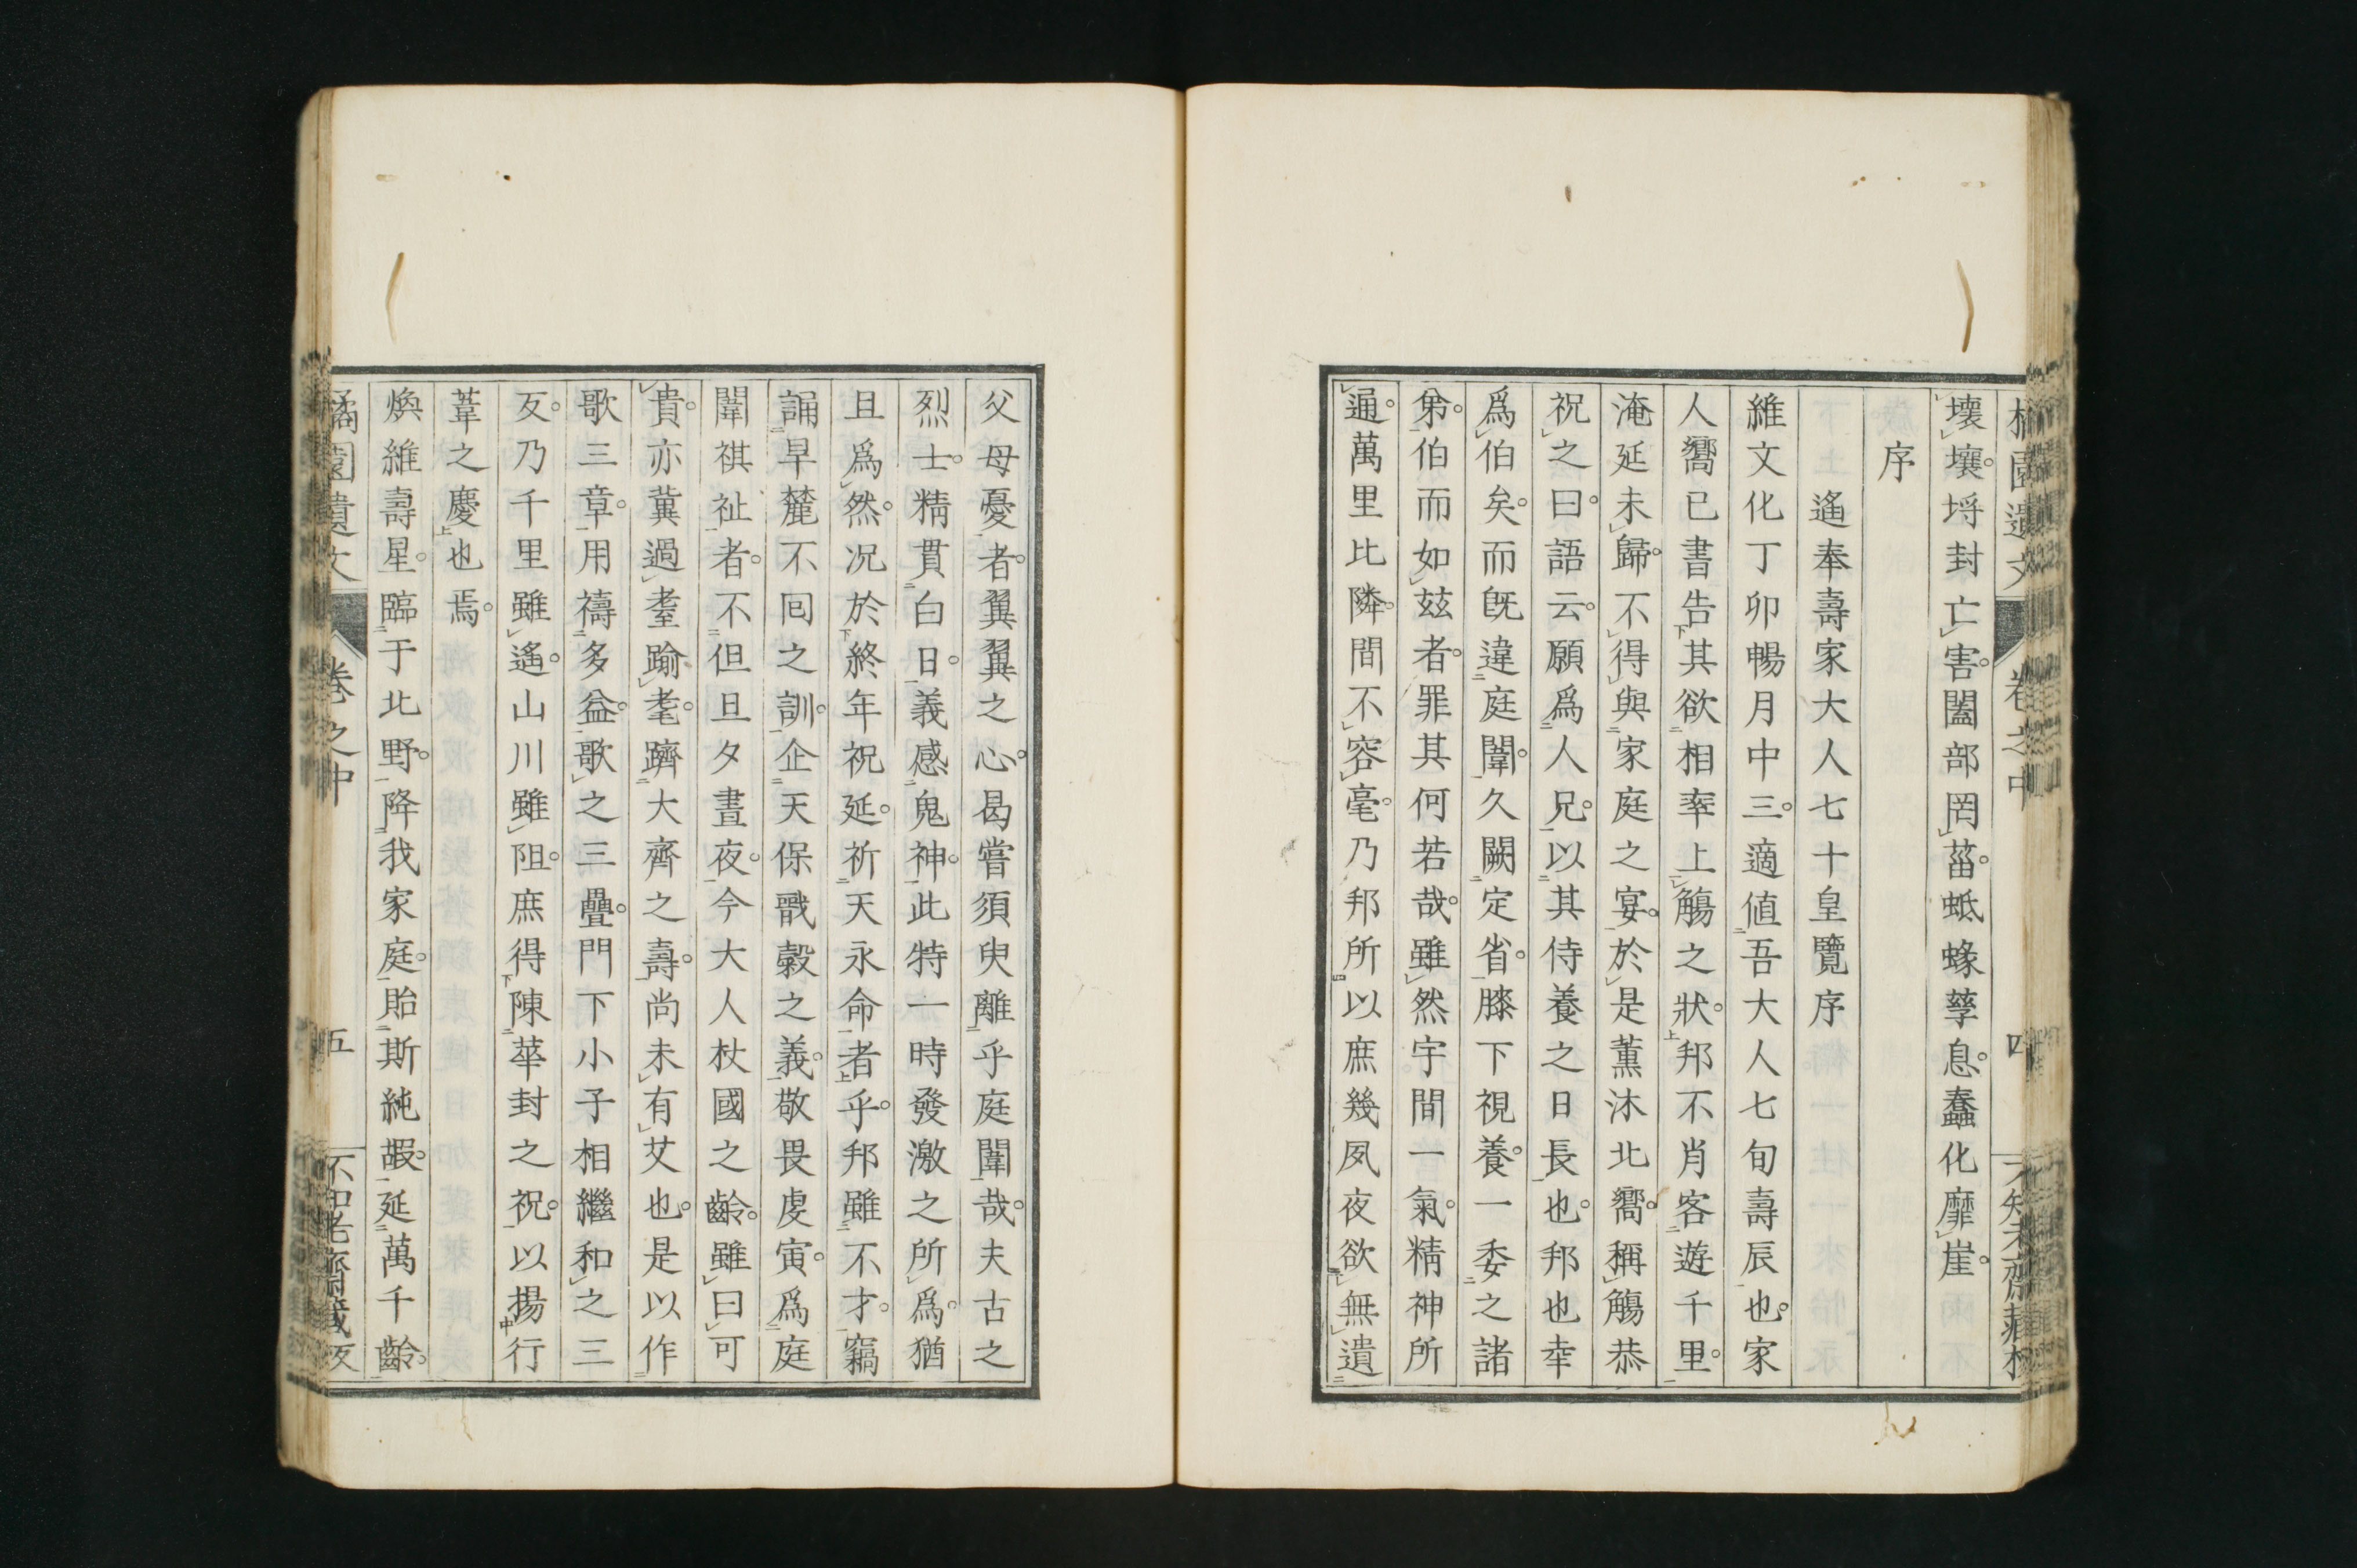 園遺文 卷之中 四
壞壤埒封亡害闔部罔菑蚳蝝孽息蠢化靡崖
序
遙奉壽家大人七十皇覽序
維文化丁卯暢月中三適値吾大人七旬壽辰也家
人嚮已書告其欲相率上觴之狀邦不肖客遊千里
淹延未歸不得與家庭之宴於是薰沐北嚮稱觴恭
祝之曰語云願爲人兄以其侍養之日長也邦也幸
爲伯矣而旣違庭闈久闕定省膝下視養一委之諸
弟伯而如玆者罪其何若哉雖然宇間一氣精神所
通萬里比隣間不容毫乃邦所以庶幾夙夜欲無遺
父母憂者翼翼之心曷嘗須臾離乎庭闈哉夫古之
烈士精貫白日義感鬼神此特一時發激之所爲猶
且爲然況於終年祝延祈天永命者乎邦雖不才竊
誦旱麓不回之訓企天保戩穀之義敬畏虔寅爲庭
闈祺祉者不但旦夕晝夜今大人杖國之齡雖曰可
貴亦冀過耋踰耄躋大齊之壽尚未有艾也是以作
歌三章用禱多益歌之三疊門下小子相繼和之三
反乃千里雖遙山川雖阻庶得陳華封之祝以揚行
葦之慶也焉
煥維壽星臨于北野降我家庭貽斯純嘏延萬千齡
橘園遺文 卷之中 五